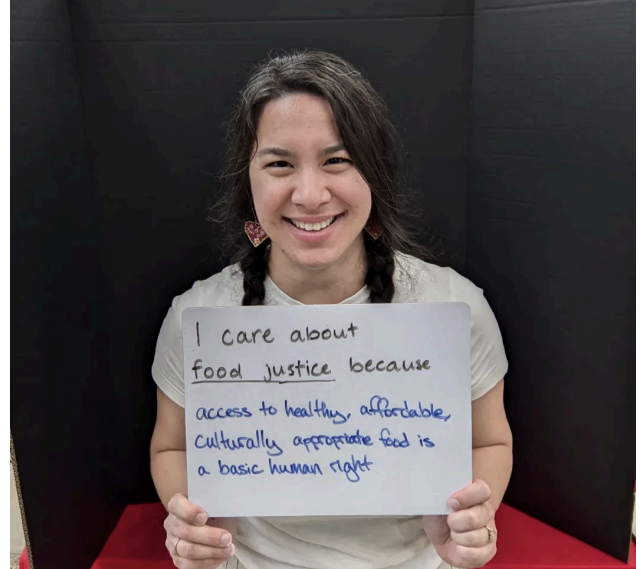 I care about
food justice because
access to healthy, affordable,
culturally appropriate food is
a basic human right